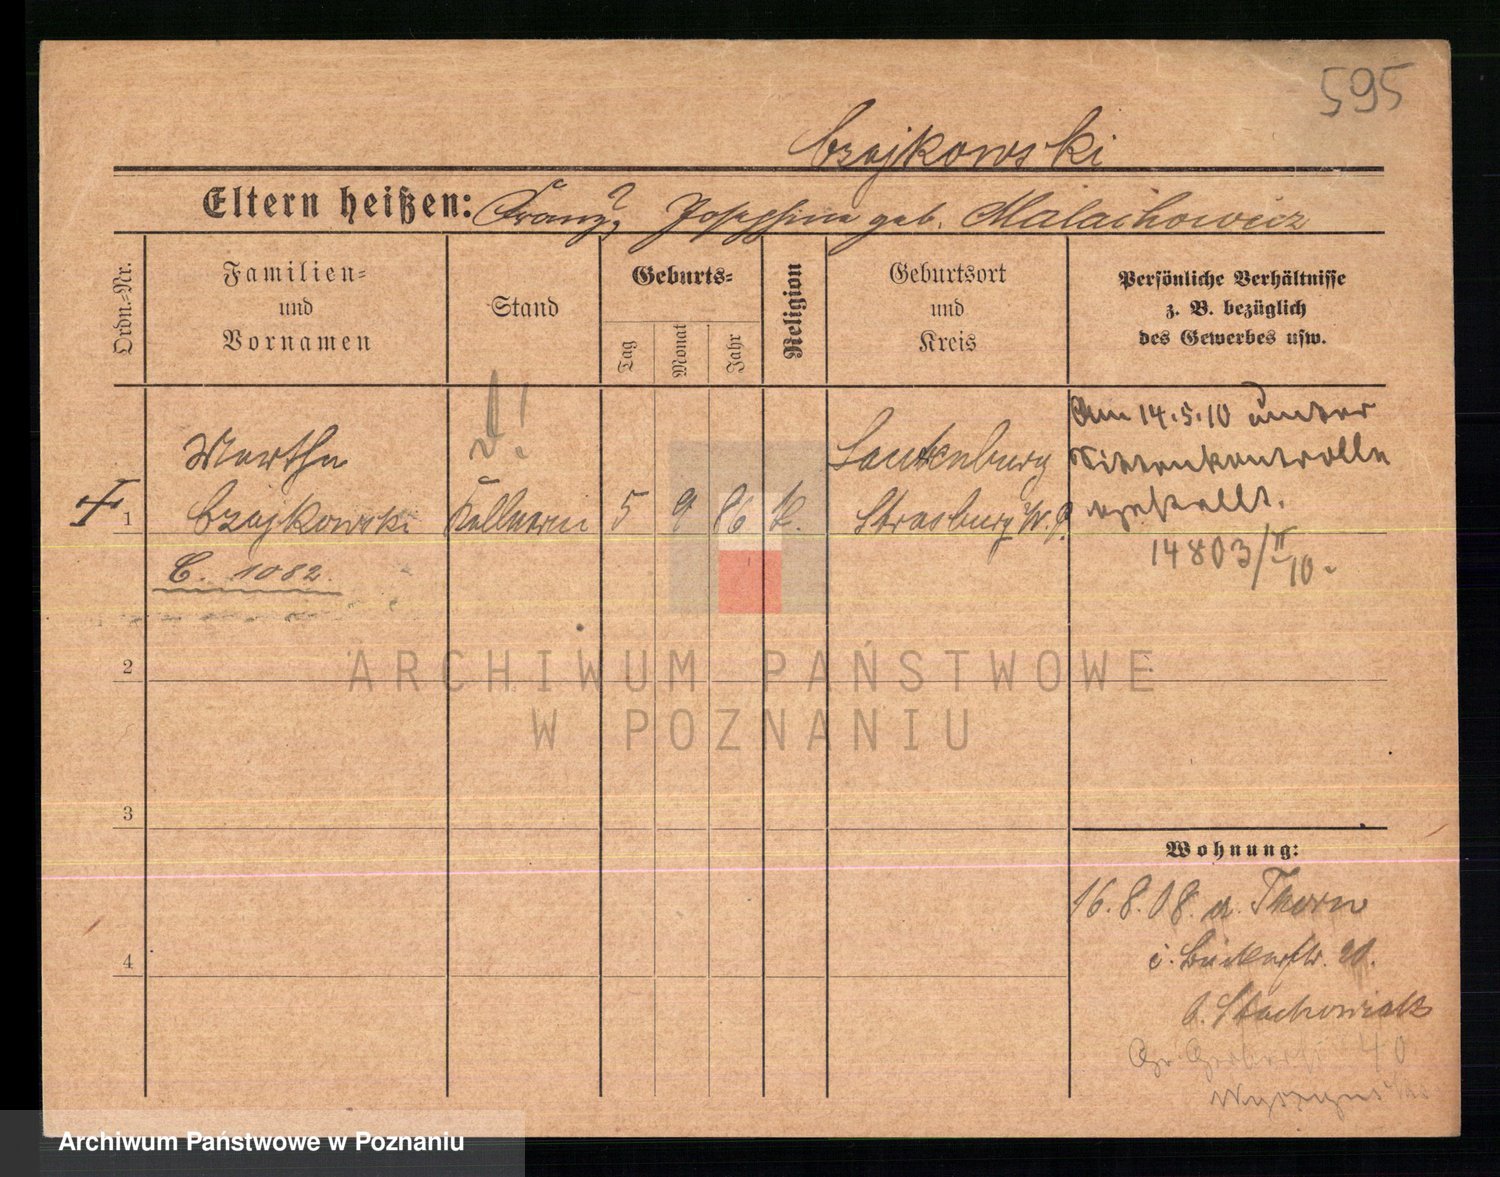 595
Czajkowski
Eltern heißen: Franz, Josephine geb. Malachowicz
Ordn.-Nr.
Familien-
und
Vornamen
Stand
Geburts-
Tag
Monat
Jahr
Religion
Geburtsort
und
Kreis
Persönliche Verhältnisse
z. B. bezüglich
des Gewerbes usw.
Martha
1 Czajkowski Kellnerin 5 9 86 k. Lautenburg
Strasburg W. P.
C. 1082.
Am 14.5.10 unter
Sittenkontrolle
gestellt.
14803/II 10.
2
3
4
Wohnung:
16.8.08. a. Thorn
i. Bäckerstr. 20.
b. Stachowiak
Gr. Gerberst 40
ARCHIWUM PAŃSTWOWE
W POZNANIU
Archiwum Państwowe w Poznaniu